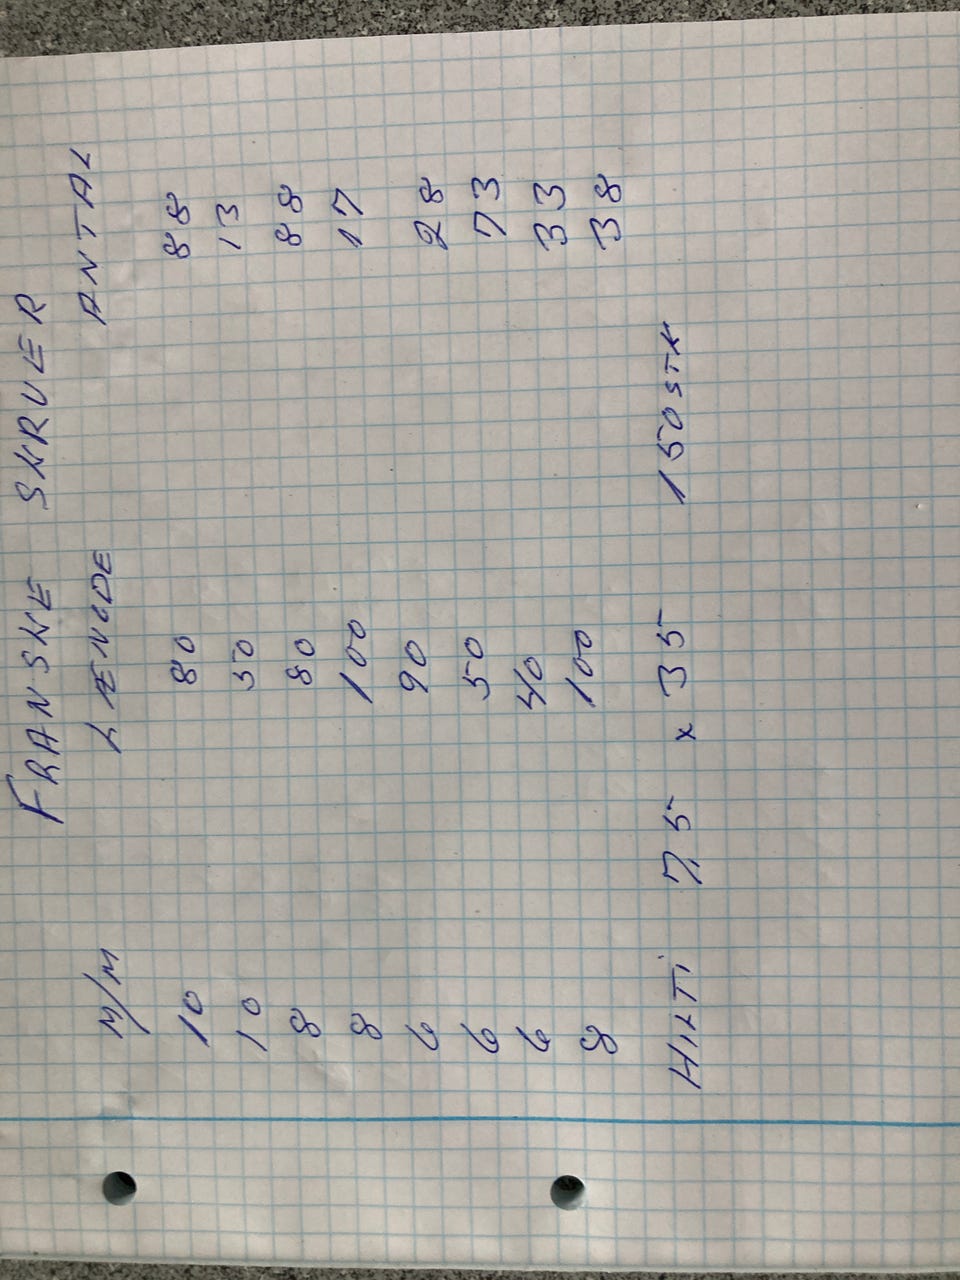 FRANSKE SKRUER
M/M LÆNGDE ANTAL
10 80 88
10 50 13
8 80 88
8 100 17
6 90 28
6 50 73
6 40 33
8 100 38
HILTI 7,5 x 35 150 STK